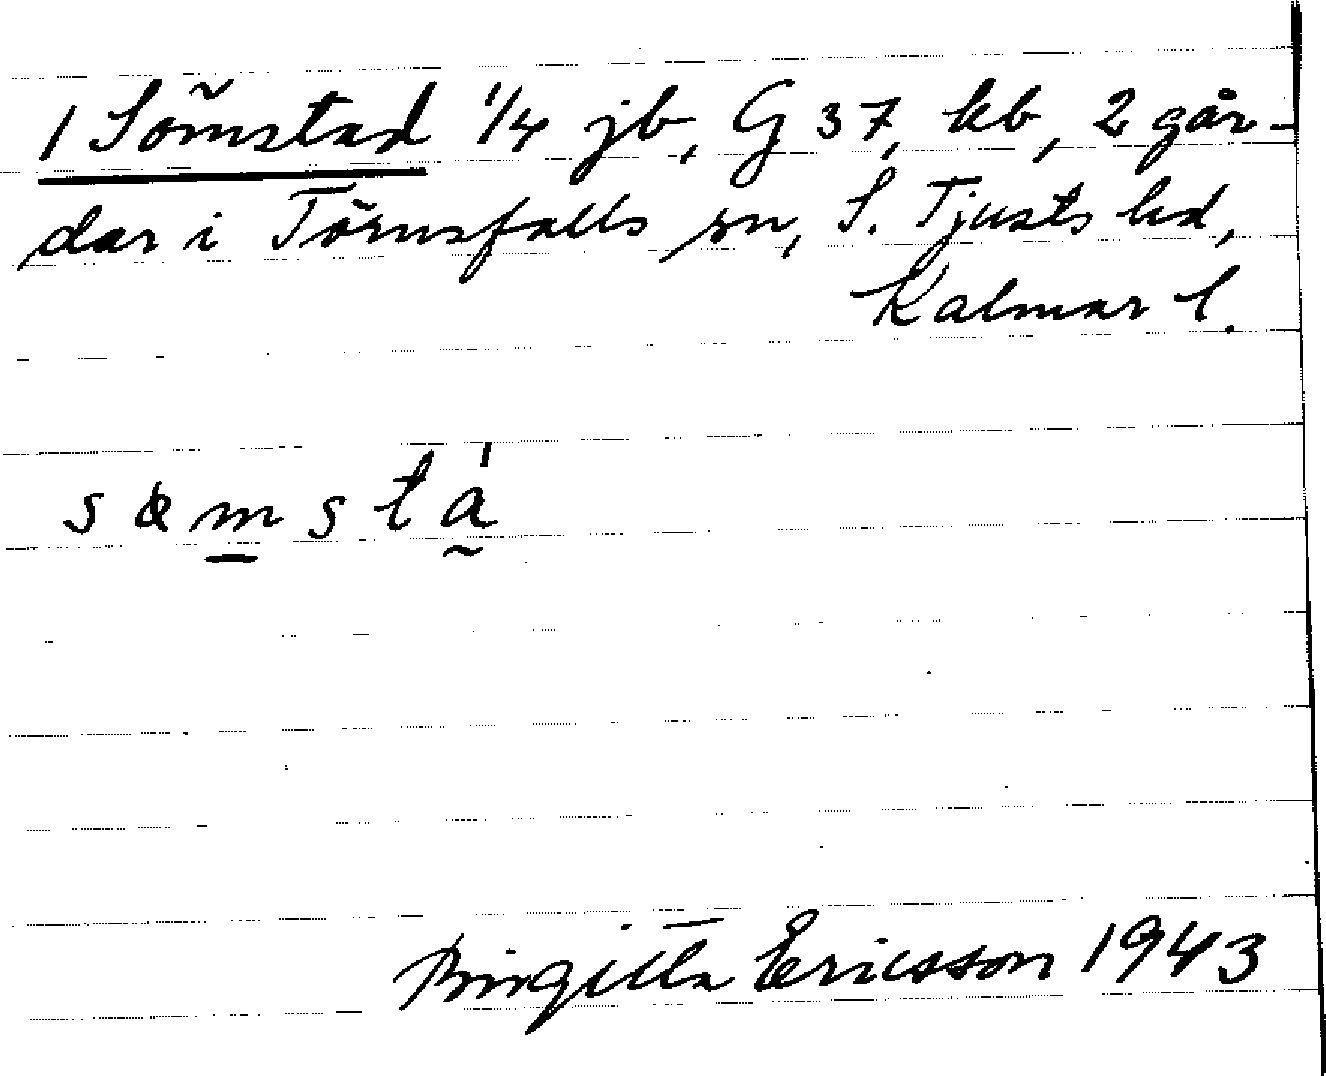 1 Sömstad 1/4 jb, G 37, kb, 2 går-
dar i Törnsfalls sn, S. Tjusts hd,
Kalmar l.
sömstá
Birgitta Ericsson 1943